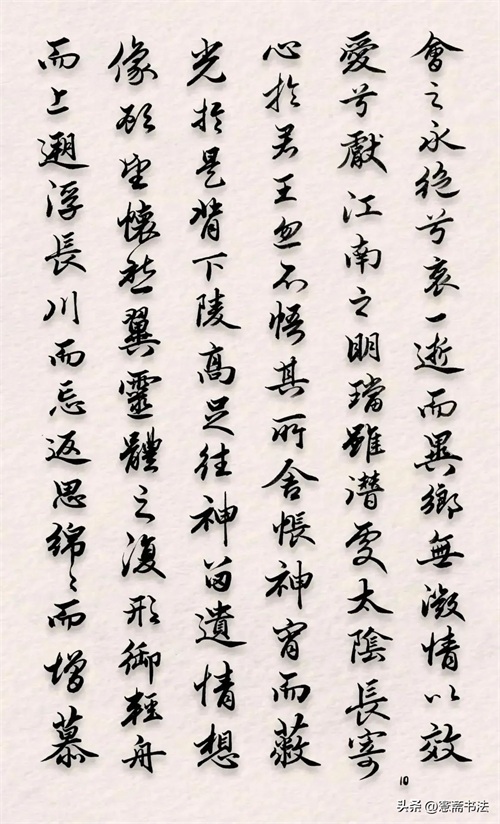 會之永絕兮哀一逝而異鄉無微情以效
愛兮獻江南之明璫雖潛處太陰長寄
心於君王忽不悟其所舍悵神宵而蔽
光於是背下陵高足往神留遺情想
像顧望懷愁翼靈體之復形御輕舟
而上遡浮長川而忘返思綿〻而增慕
10
头条 @愙斋书法